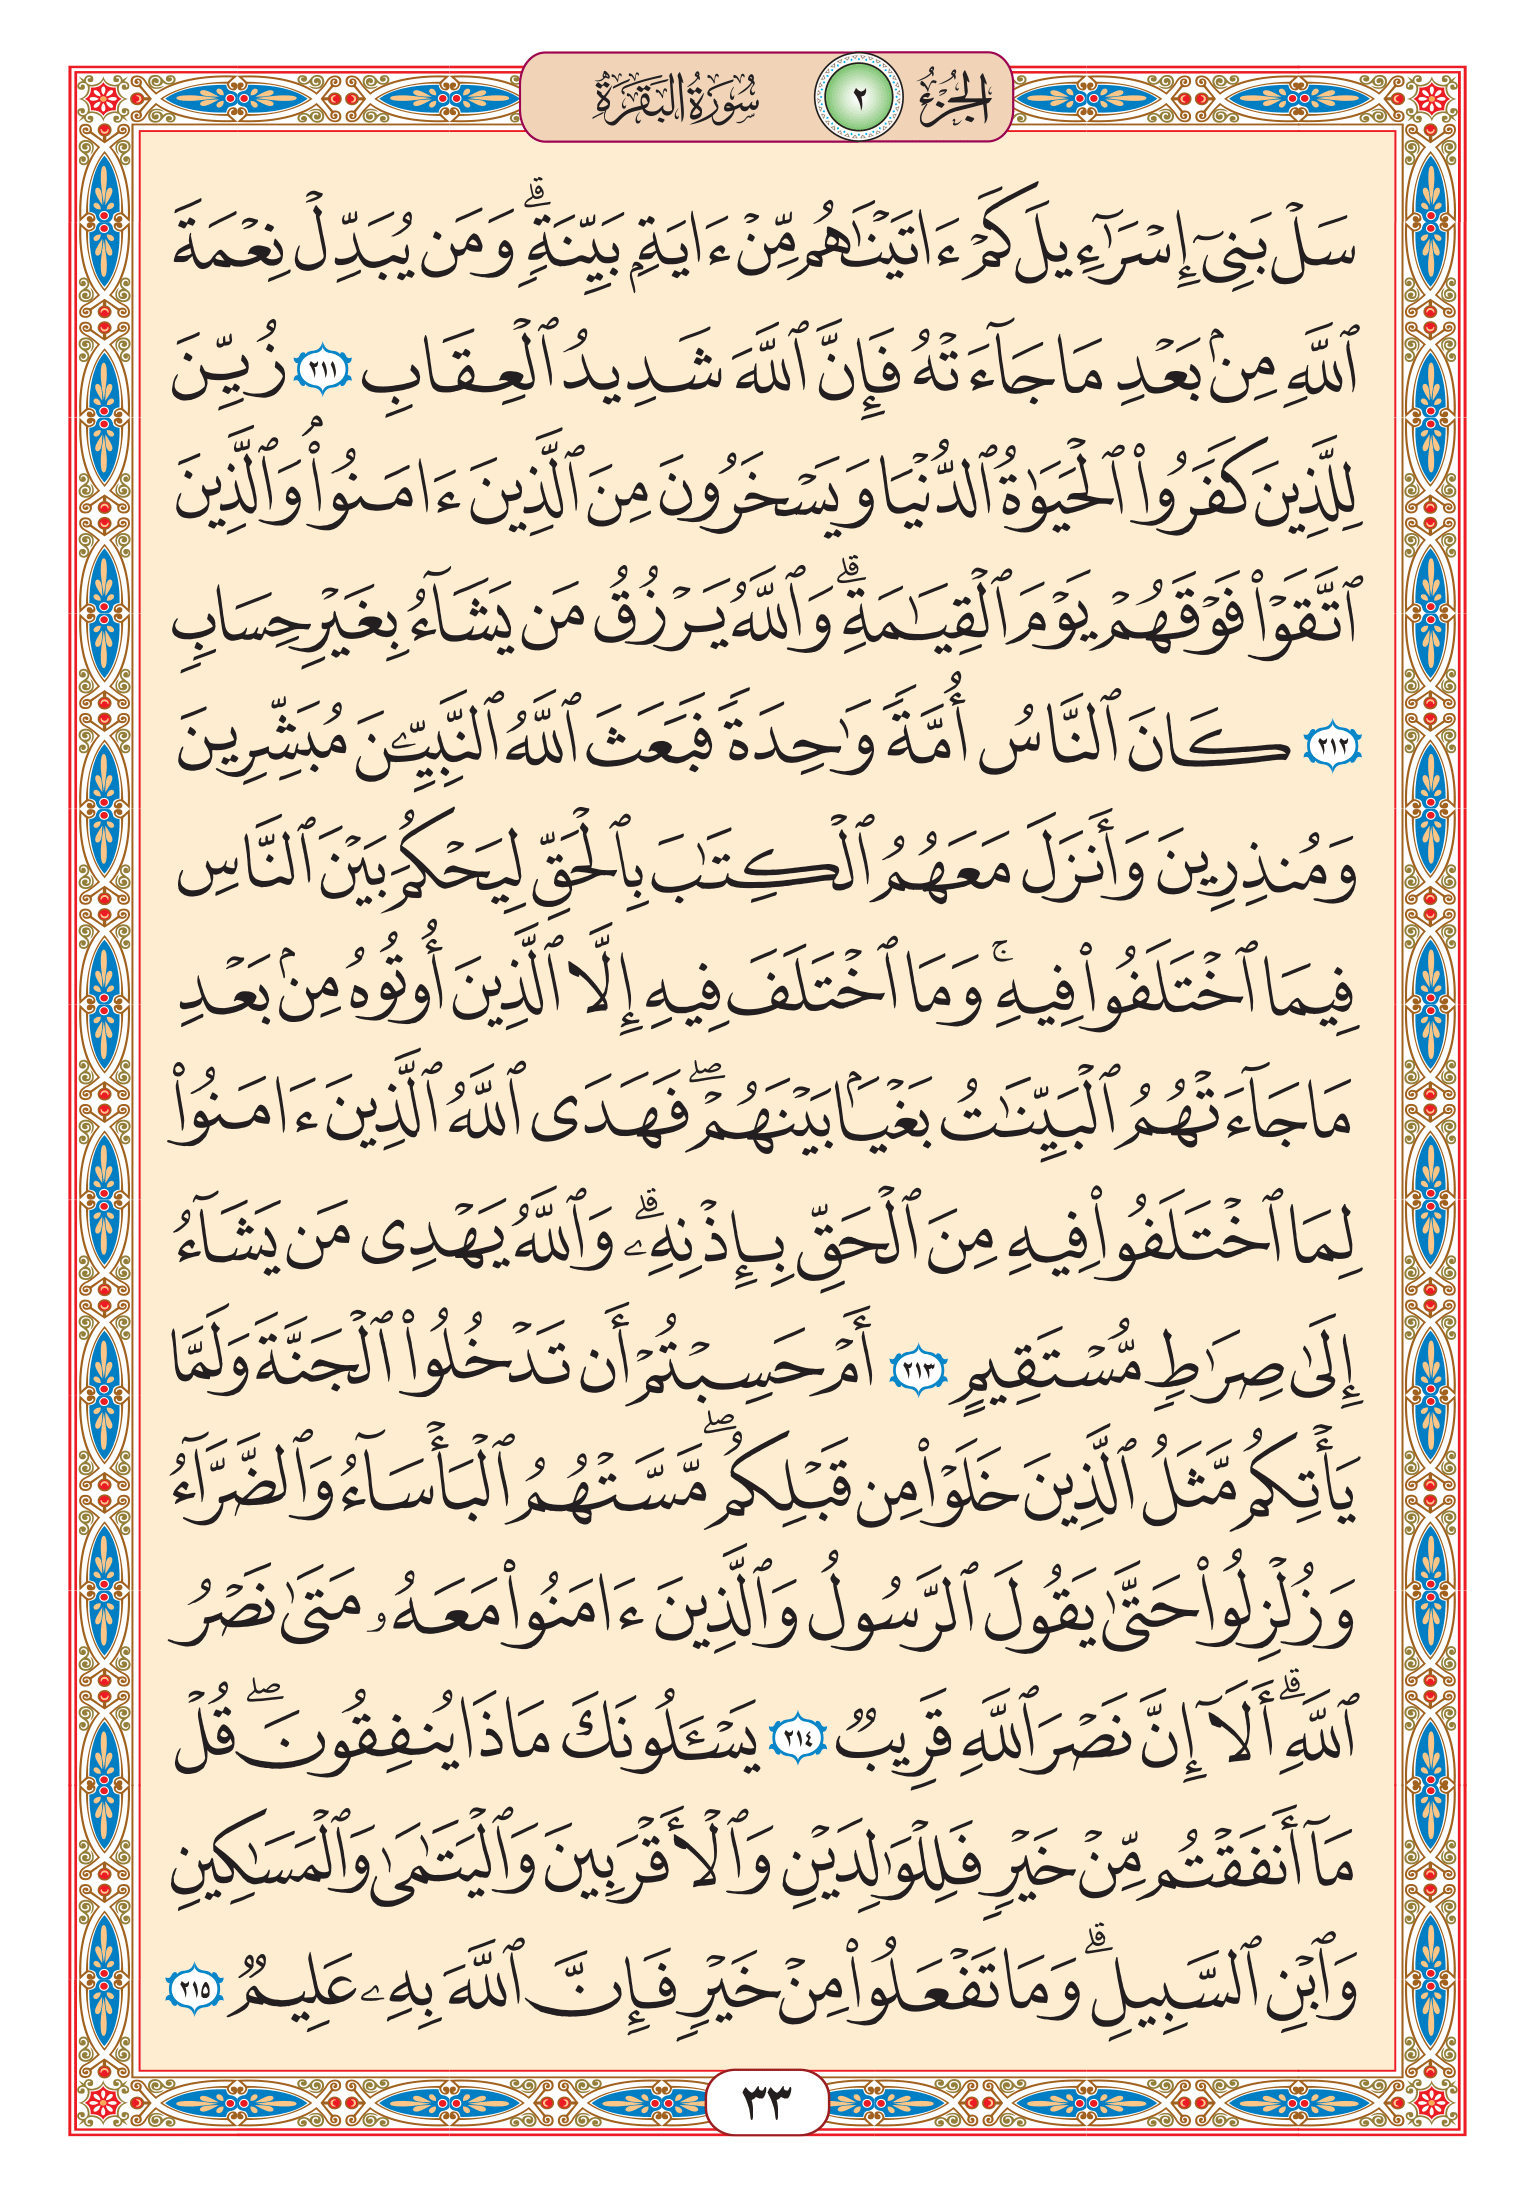 الجزء ٢ سورة البقرة
سَلۡ بَنِيٓ إِسۡرَٰٓءِيلَ كَمۡ ءَاتَيۡنَٰهُم مِّنۡ ءَايَةِۭ بَيِّنَةٖۗ وَمَن يُبَدِّلۡ نِعۡمَةَ
ٱللَّهِ مِنۢ بَعۡدِ مَا جَآءَتۡهُ فَإِنَّ ٱللَّهَ شَدِيدُ ٱلۡعِقَابِ ٢١١ زُيِّنَ
لِلَّذِينَ كَفَرُواْ ٱلۡحَيَوٰةُ ٱلدُّنۡيَا وَيَسۡخَرُونَ مِنَ ٱلَّذِينَ ءَامَنُواْۘ وَٱلَّذِينَ
ٱتَّقَوۡاْ فَوۡقَهُمۡ يَوۡمَ ٱلۡقِيَٰمَةِۗ وَٱللَّهُ يَرۡزُقُ مَن يَشَآءُ بِغَيۡرِ حِسَابٖ
٢١٢ كَانَ ٱلنَّاسُ أُمَّةٗ وَٰحِدَةٗ فَبَعَثَ ٱللَّهُ ٱلنَّبِيِّـۧنَ مُبَشِّرِينَ
وَمُنذِرِينَ وَأَنزَلَ مَعَهُمُ ٱلۡكِتَٰبَ بِٱلۡحَقِّ لِيَحۡكُمَ بَيۡنَ ٱلنَّاسِ
فِيمَا ٱخۡتَلَفُواْ فِيهِۚ وَمَا ٱخۡتَلَفَ فِيهِ إِلَّا ٱلَّذِينَ أُوتُوهُ مِنۢ بَعۡدِ
مَا جَآءَتۡهُمُ ٱلۡبَيِّنَٰتُ بَغۡيَۢا بَيۡنَهُمۡۖ فَهَدَى ٱللَّهُ ٱلَّذِينَ ءَامَنُواْ
لِمَا ٱخۡتَلَفُواْ فِيهِ مِنَ ٱلۡحَقِّ بِإِذۡنِهِۦۗ وَٱللَّهُ يَهۡدِي مَن يَشَآءُ
إِلَىٰ صِرَٰطٖ مُّسۡتَقِيمٍ ٢١٣ أَمۡ حَسِبۡتُمۡ أَن تَدۡخُلُواْ ٱلۡجَنَّةَ وَلَمَّا
يَأۡتِكُم مَّثَلُ ٱلَّذِينَ خَلَوۡاْ مِن قَبۡلِكُمۖ مَّسَّتۡهُمُ ٱلۡبَأۡسَآءُ وَٱلضَّرَّآءُ
وَزُلۡزِلُواْ حَتَّىٰ يَقُولَ ٱلرَّسُولُ وَٱلَّذِينَ ءَامَنُواْ مَعَهُۥ مَتَىٰ نَصۡرُ
ٱللَّهِۗ أَلَآ إِنَّ نَصۡرَ ٱللَّهِ قَرِيبٞ ٢١٤ يَسۡـَٔلُونَكَ مَاذَا يُنفِقُونَۖ قُلۡ
مَآ أَنفَقۡتُم مِّنۡ خَيۡرٖ فَلِلۡوَٰلِدَيۡنِ وَٱلۡأَقۡرَبِينَ وَٱلۡيَتَٰمَىٰ وَٱلۡمَسَٰكِينِ
وَٱبۡنِ ٱلسَّبِيلِۗ وَمَا تَفۡعَلُواْ مِنۡ خَيۡرٖ فَإِنَّ ٱللَّهَ بِهِۦ عَلِيمٞ ٢١٥
٣٣